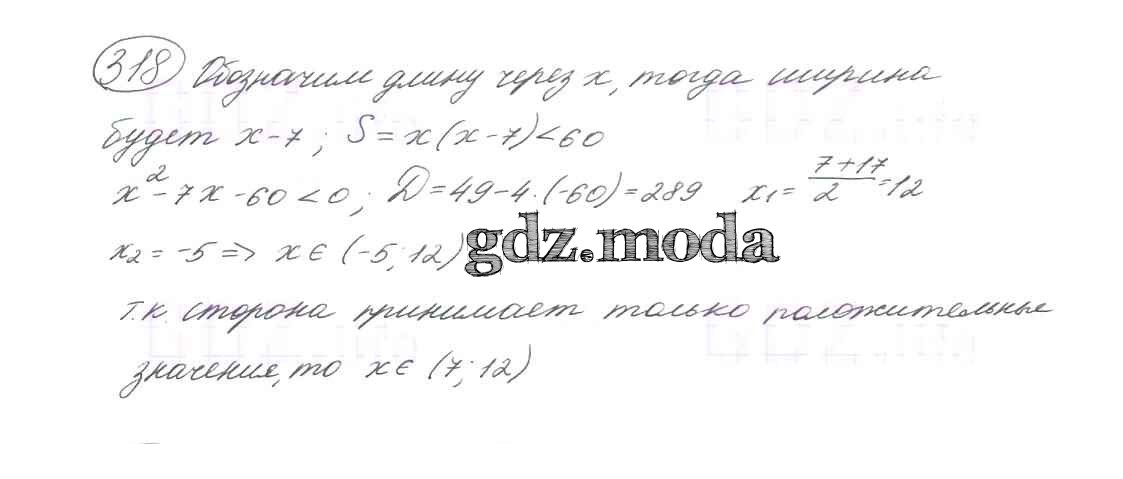 318 Обозначим длину через x, тогда ширина
будет x-7; S = x(x-7)<60
x²-7x-60<0; D=49-4·(-60)=289 x₁= (7+17)/2 =12
x₂ = -5 => x ∈ (-5; 12)
gdz.moda
т.к. сторона принимает только положительные
значения, то x ∈ (7; 12)